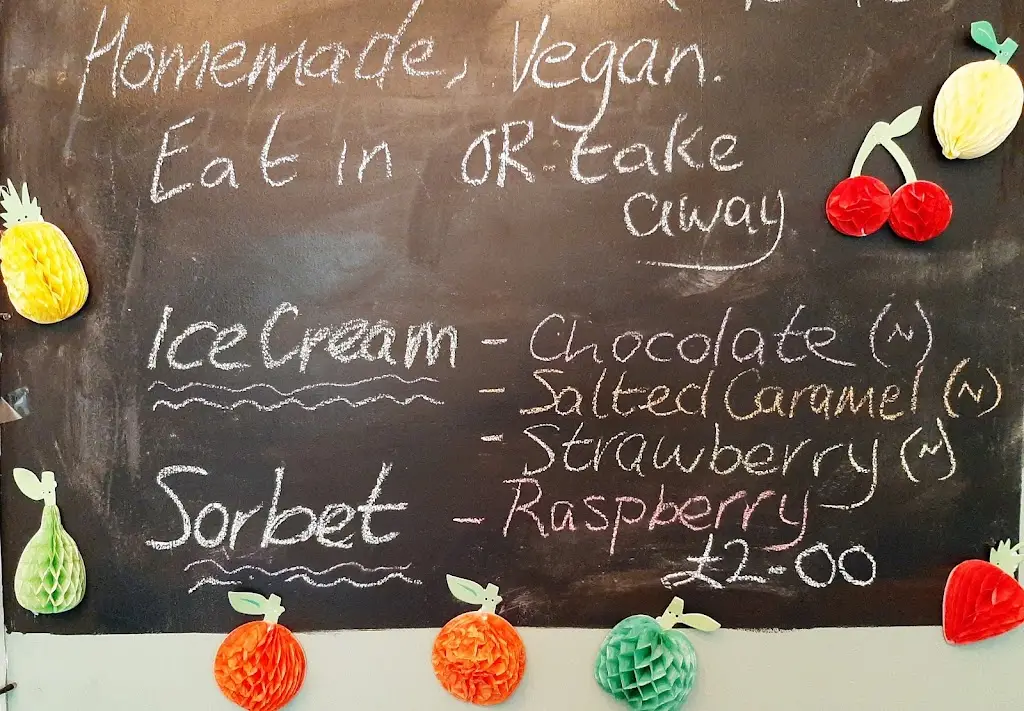 Homemade, Vegan.
Eat in OR take
away
Ice Cream - Chocolate (N)
- Salted Caramel (N)
- Strawberry (N)
Sorbet - Raspberry
£2-00